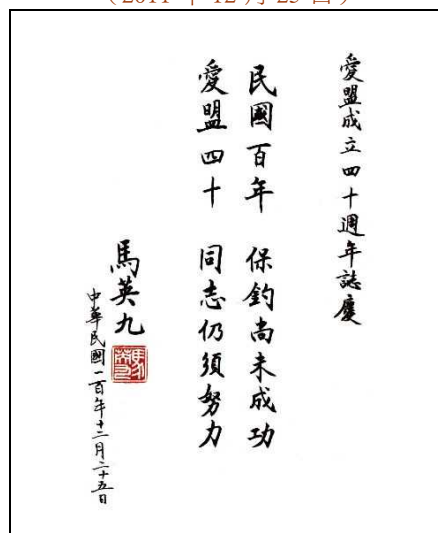 （2011 年 12 月 25 日）
愛盟成立四十週年誌慶
民國百年　保釣尚未成功
愛盟四十　同志仍須努力
馬英九
中華民國一百年十二月二十五日